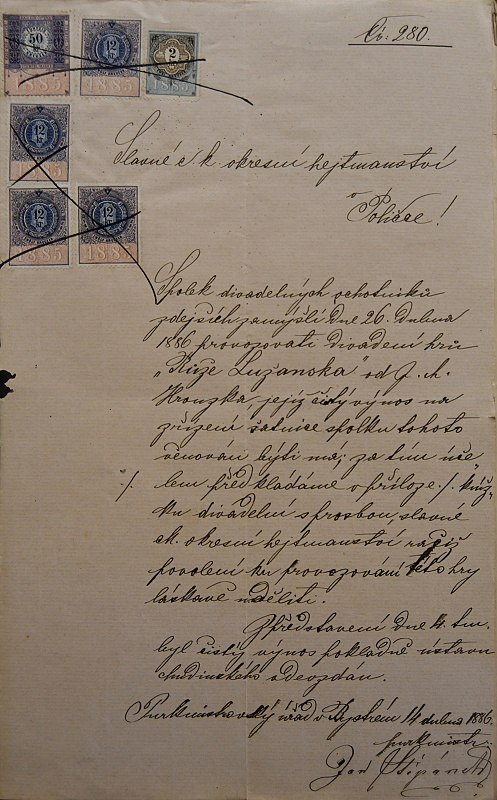 Čís: 280.
50
12
2
1885
1885
1885
12
1885
12
12
1885
1885
Slavné c k okresní hejtmanství
v Poličce!
Spolek divadelných ochotníků
zdejších zamýšlí dne 26. dubna
1886 provozovati divadení hru
„Růže Lužanská" od J. A.
jejíž čistý výnos na
zřízení šatnice spolku tohoto
věnován býti má; za tím úče
./. lem předkládáme v příloze ./. kníž-
ku divadelní s prosbou, slavné
ck. okresní hejtmanství račiž
povolení ku provozování této hry
láskavě uděliti.
Z představení dne 4. t.m.
byl čistý výnos pokladně ústavu
chudinského odevzdán.
Purkmistrovský úřad v Bystrém 14 dubna 1886.
purkmistr
Jan Štěpánek